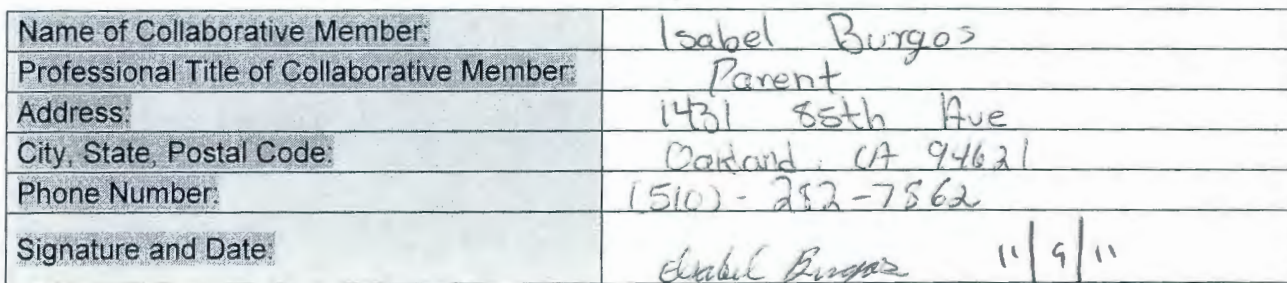 Name of Collaborative Member: Isabel Burgos
Professional Title of Collaborative Member: Parent
Address: 1431 85th Ave
City, State, Postal Code: Oakland, CA 94621
Phone Number: (510) - 282-7862
Signature and Date: Isabel Burgos 11/9/11